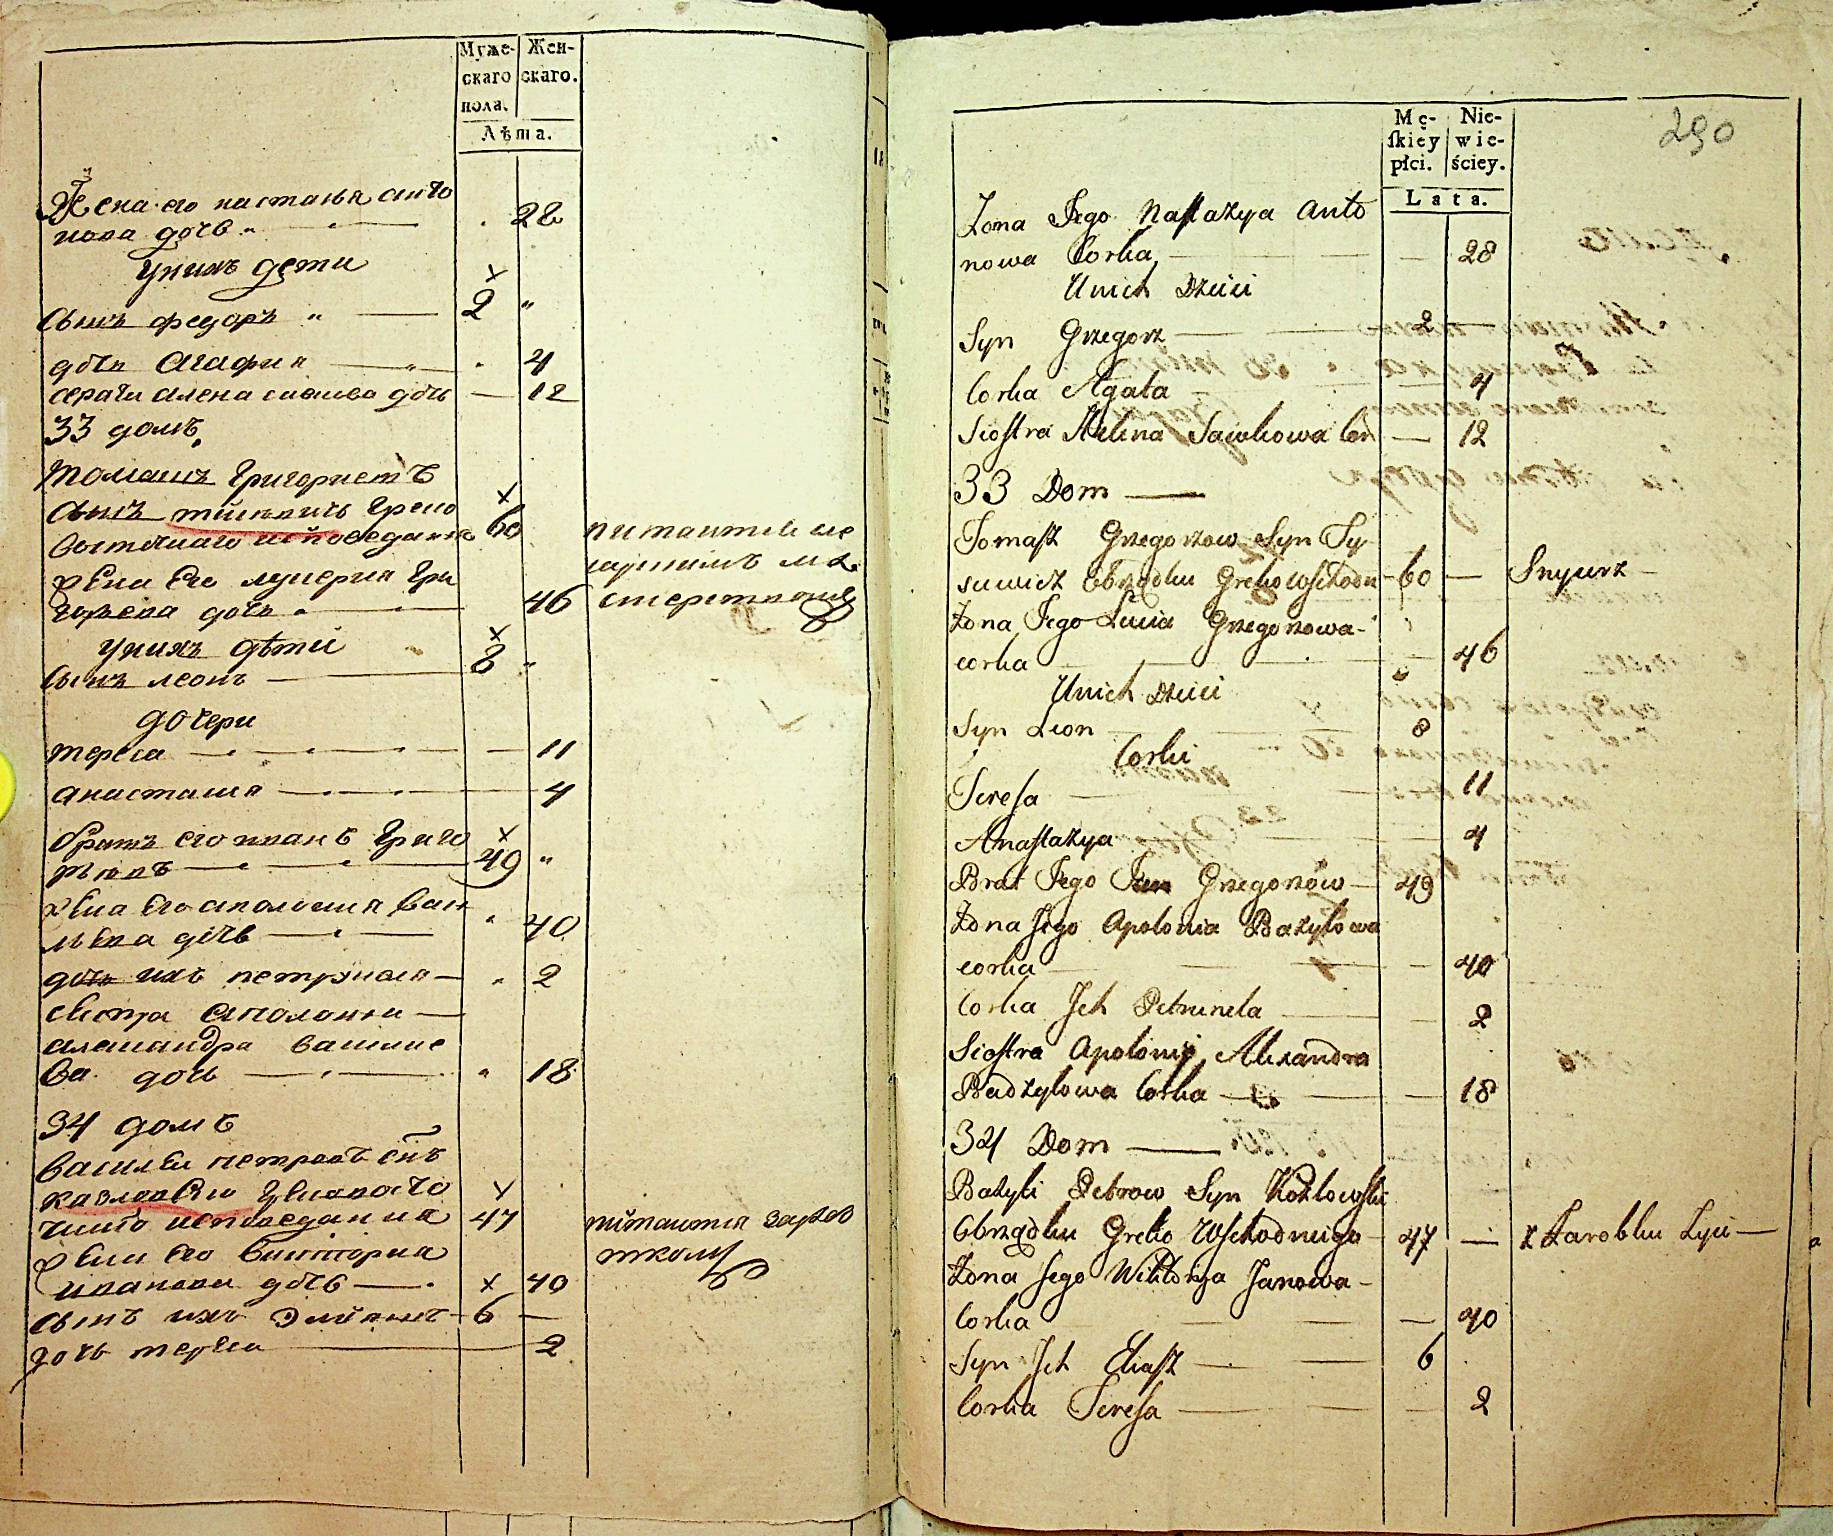 Муже-
скаго
пола.
Жен-
скаго.
Лѣта.
Жена его настазья анто
нова дочь 28
Уних дети
Сынъ федоръ 2
дочь Агафия 4
сестра алена савкова дочь 12
33 домъ
Томашъ Григориевъ
Сынъ греко
восточнаго исповедания 60
питаится
Жена Его луцерия Гри
горьева дочь 46
мастерствомъ
Унихъ дѣти
Сынъ леонъ 8
дочери
тереса 11
анастасия 4
братъ его иванъ Григо
рьевъ 49
Жена Его аполония Васи
льева дочь 40
дочь ихъ петрунеля 2
сестра Аполонии
александра васили
ева дочь 18
34 домъ
Василеи петровъ снъ
казловски Грековосто
чнаго исповедания 47
питаится заработ
Жена Его виктория
иванова дочь 40
Сынъ ихъ Элияшъ 6
дочь тереса 2
290
Mę-
skiey
płci.
Nie-
wie-
ściey.
Lata.
Zona Jego Nastazya Anto
nowa Corka 28
Unich Dzieci
Syn Grzegorz 2
Corka Agata 4
Siostra Helina Sawkowa Cor 12
33 Dom
Tomasz Grzegorzow Syn Ty
suwicz Obrządku Greko Wschodn 60 Snycerz
Zona Jego Lucia Grzegorzowa
corka 46
Unich Dzieci
Syn Leon 8
Corki
Teresa 11
Anastazya 4
Brat Jego Jan Grzegorzow 49
Zona Jego Apolonia Bazylowa
corka 40
Corka Jch Petrunela 2
Siostra Apolonij Alexandra
Badzylowa Corka 18
34 Dom
Bazyli Petrow Syn Kozlowski
Obrządku Greko Wschodniego 47 z Zarobku Zyie
Zona Jego Wiktorya Janowa
Corka 40
Syn Jch Eliasz 6
Corka Teresa 2